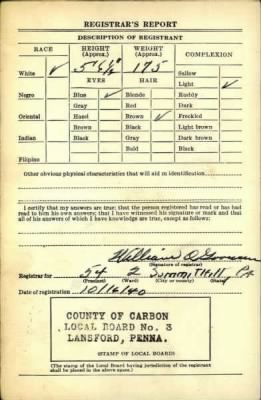 REGISTRAR'S REPORT
DESCRIPTION OF REGISTRANT
RACE HEIGHT (Approx.) WEIGHT (Approx.) COMPLEXION
White ✓ 175 Sallow
EYES HAIR Light ✓
Negro Blue ✓ Blonde Ruddy
Gray Red Dark
Oriental Hazel Brown ✓ Freckled
Brown Black Light brown
Indian Black Gray Dark brown
Bald Black
Filipino
Other obvious physical characteristics that will aid in identification
I certify that my answers are true; that the person registered has read or has had
read to him his own answers; that I have witnessed his signature or mark and that
all of his answers of which I have knowledge are true, except as follows:
William
(Signature of registrar)
Registrar for 54 2 Summit Hill Pa
(Precinct) (Ward) (City or county) (State)
Date of registration 10/16/40
COUNTY OF CARBON
LOCAL BOARD No. 3
LANSFORD, PENNA.
(STAMP OF LOCAL BOARD)
(The stamp of the Local Board having jurisdiction of the registrant
shall be placed in the above space.)